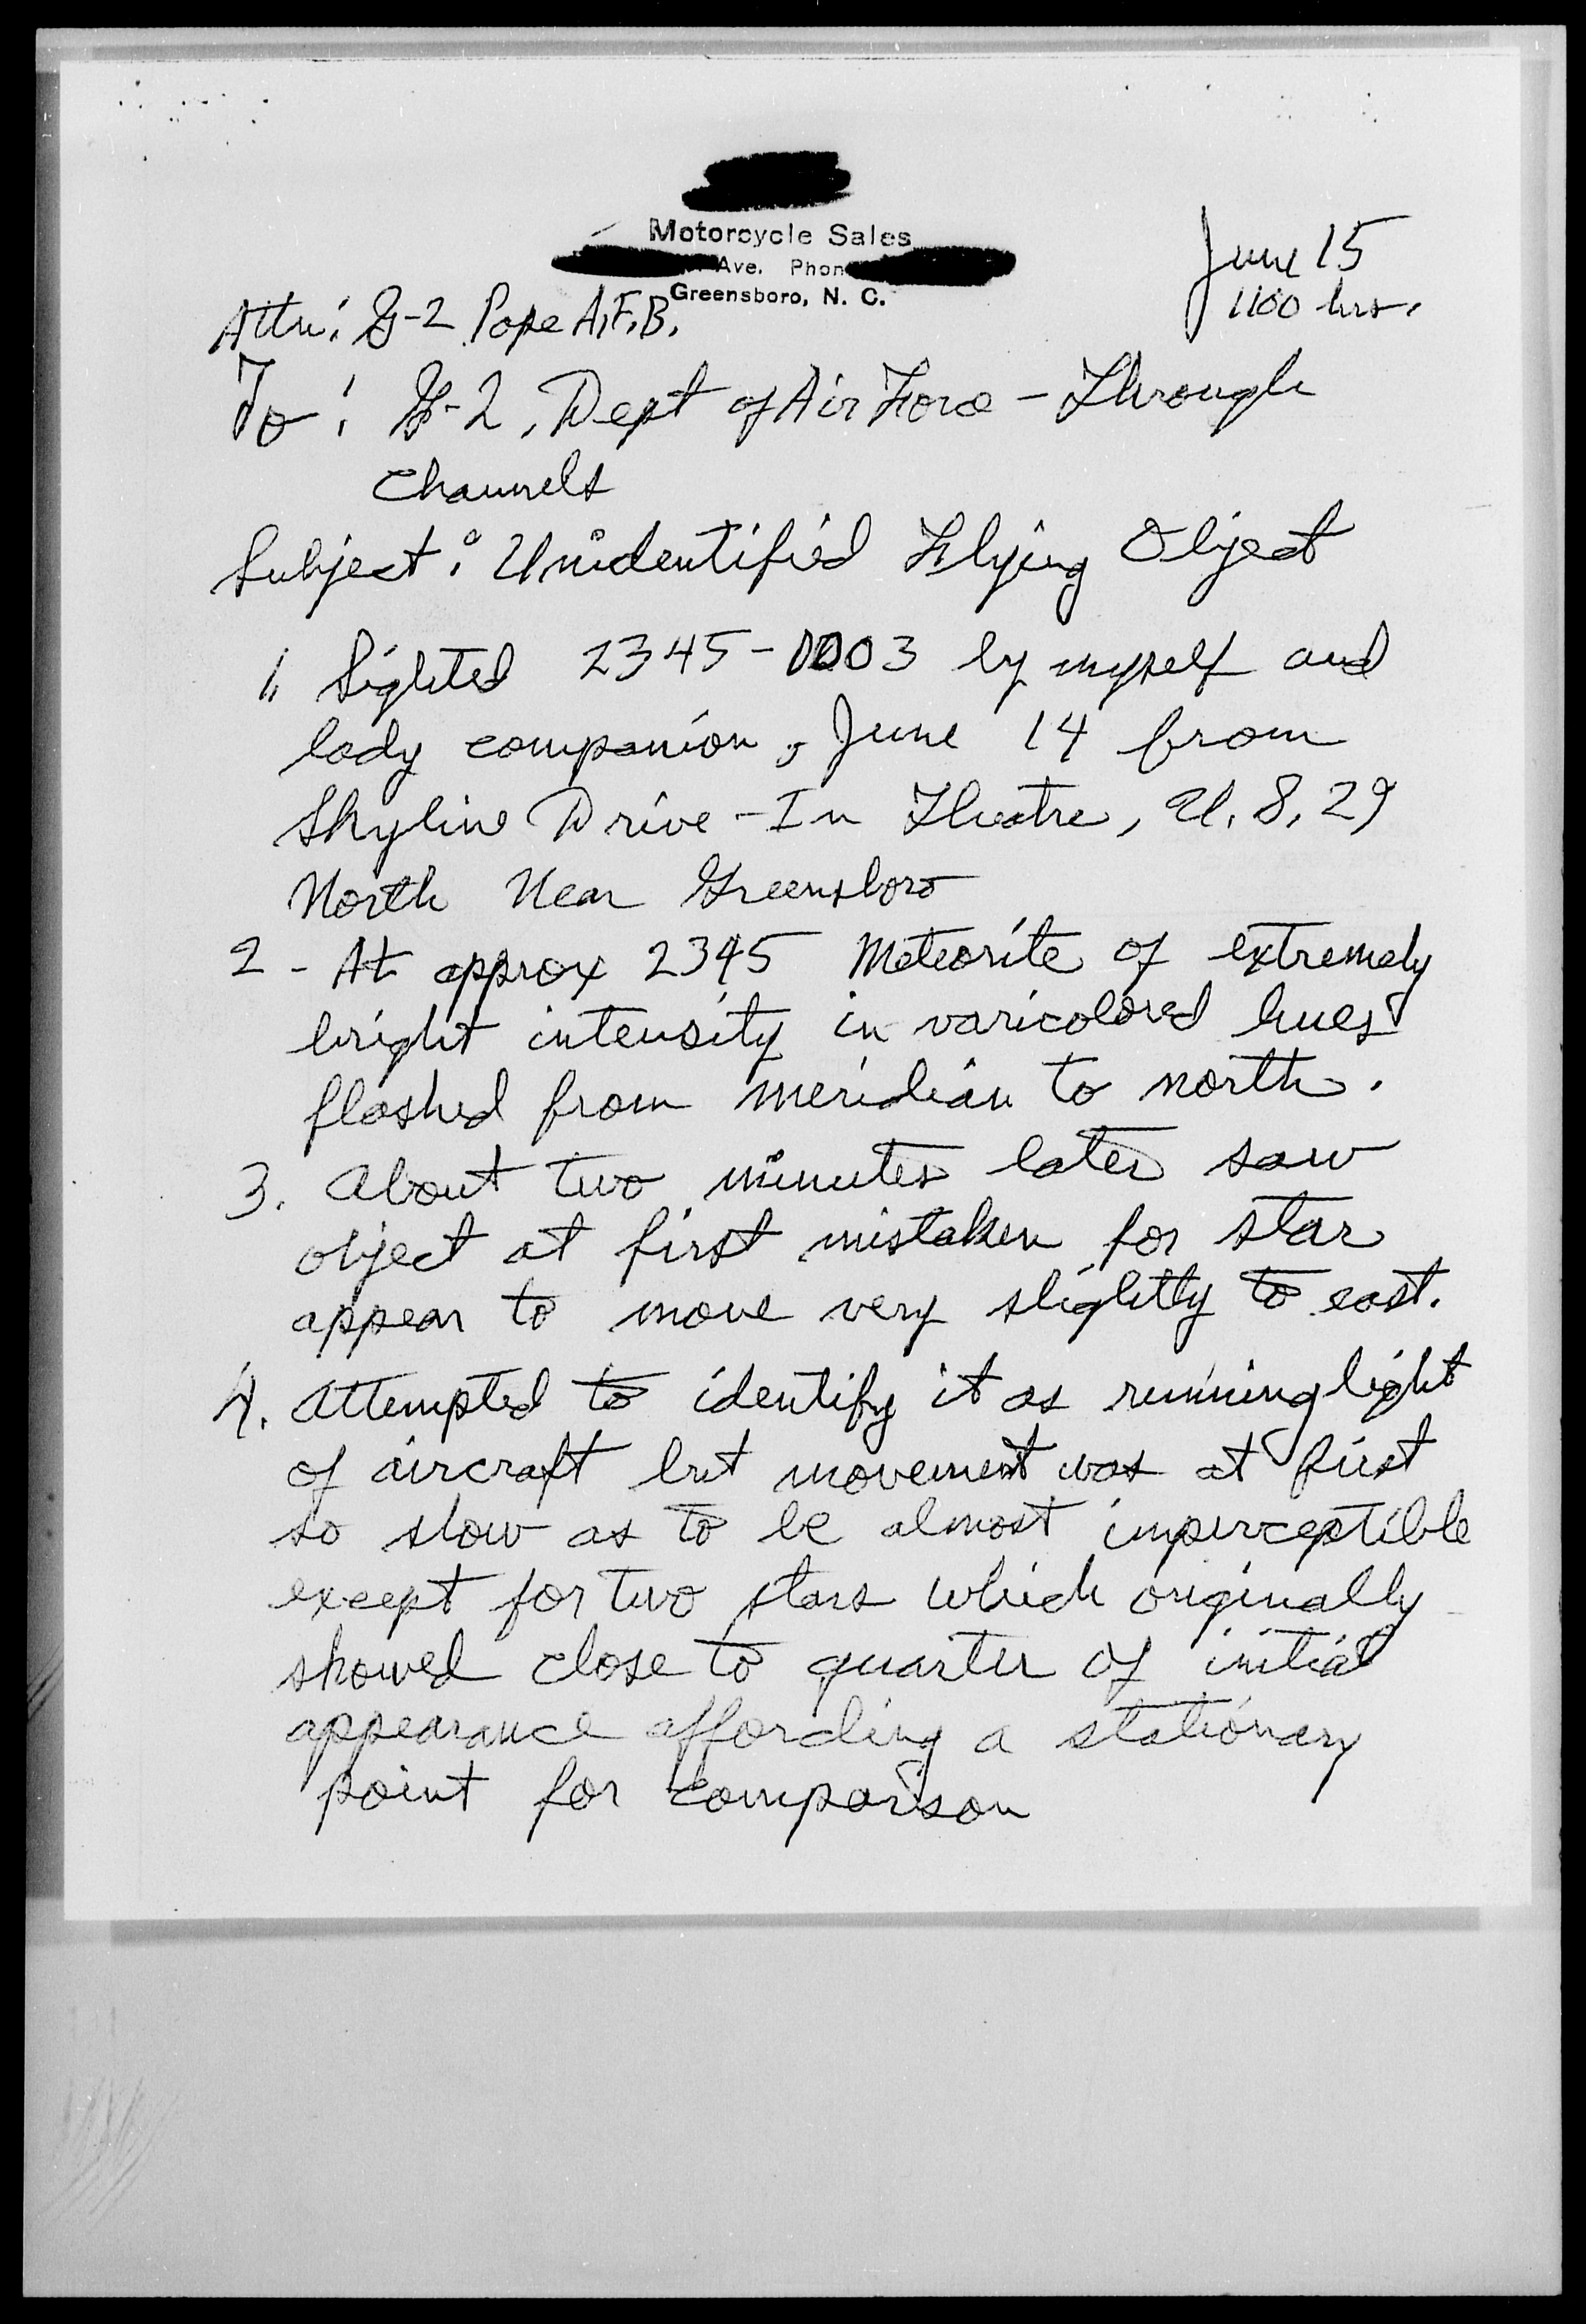 Motorcycle Sales
Ave. Phon
Greensboro, N. C.
June 15
1100 hrs.
Attn: G-2 Pope A.F.B.
To: G-2, Dept of Air Force - Through
Channels
Subject: Unidentified Flying Object
1. Sighted 2345-0003 by myself and
lady companion, June 14 from
Skyline Drive-In Theatre, U.S. 29
North Near Greensboro
2 - At approx 2345 Meteorite of extremely
bright intensity in varicolored hues
flashed from meridian to north.
3. About two minutes later saw
object at first mistaken for star
appear to move very slightly to east.
4. Attempted to identify it as running light
of aircraft but movement was at first
so slow as to be almost imperceptible
except for two stars which originally
showed close to quarter of initial
appearance affording a stationary
point for comparison